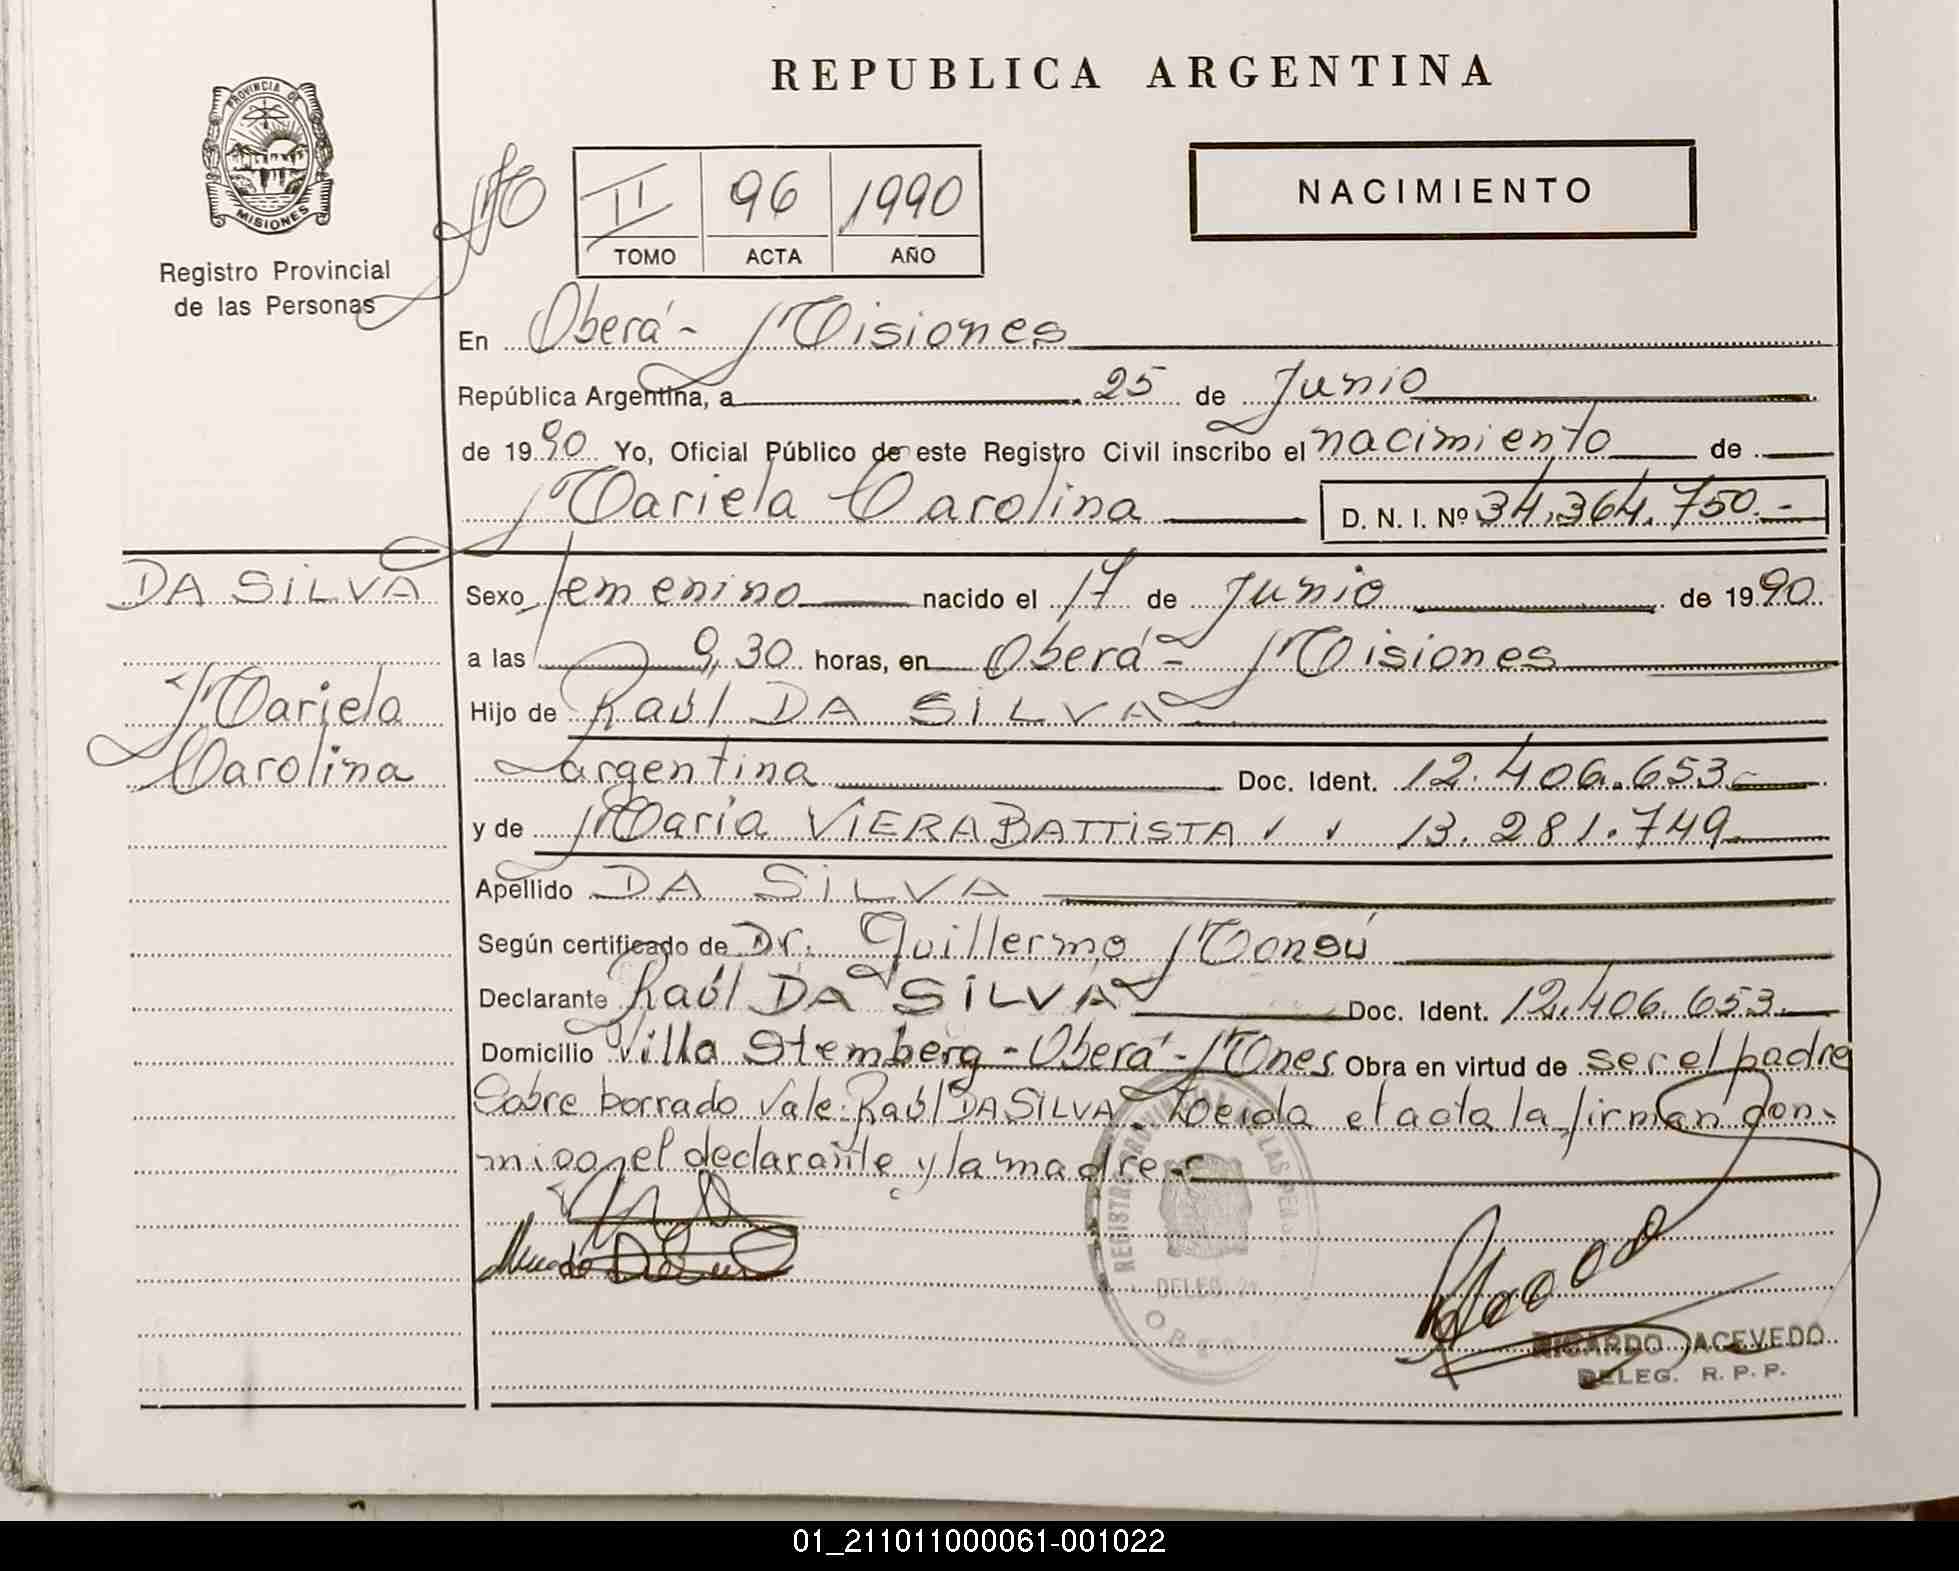 REPUBLICA ARGENTINA
PROVINCIA DE
MISIONES
Registro Provincial
de las Personas
II 96 1990
TOMO ACTA AÑO
NACIMIENTO
En Oberá - Misiones
República Argentina, a 25 de Junio
de 1990 Yo, Oficial Público de este Registro Civil inscribo el nacimiento de
Mariela Carolina D. N. I. Nº 34.364.750.-
DA SILVA
Mariela
Carolina
Sexo femenino nacido el 17 de Junio de 1990
a las 9,30 horas, en Oberá - Misiones
Hijo de Raúl DA SILVA
argentina Doc. Ident. 12.406.653.-
y de Maria VIERA BATTISTA 13.281.749
Apellido DA SILVA
Según certificado de Dr. Guillermo
Declarante Raúl DA SILVA Doc. Ident. 12.406.653.
Domicilio Villa Stemberg - Oberá - Mnes Obra en virtud de ser el padre
Sobre borrado Vale: Raúl DA SILVA. Leida el acta la firman con-
migo, el declarante y la madre.-
DELEG.
RICARDO ACEVEDO
DELEG. R. P. P.
01_211011000061-001022